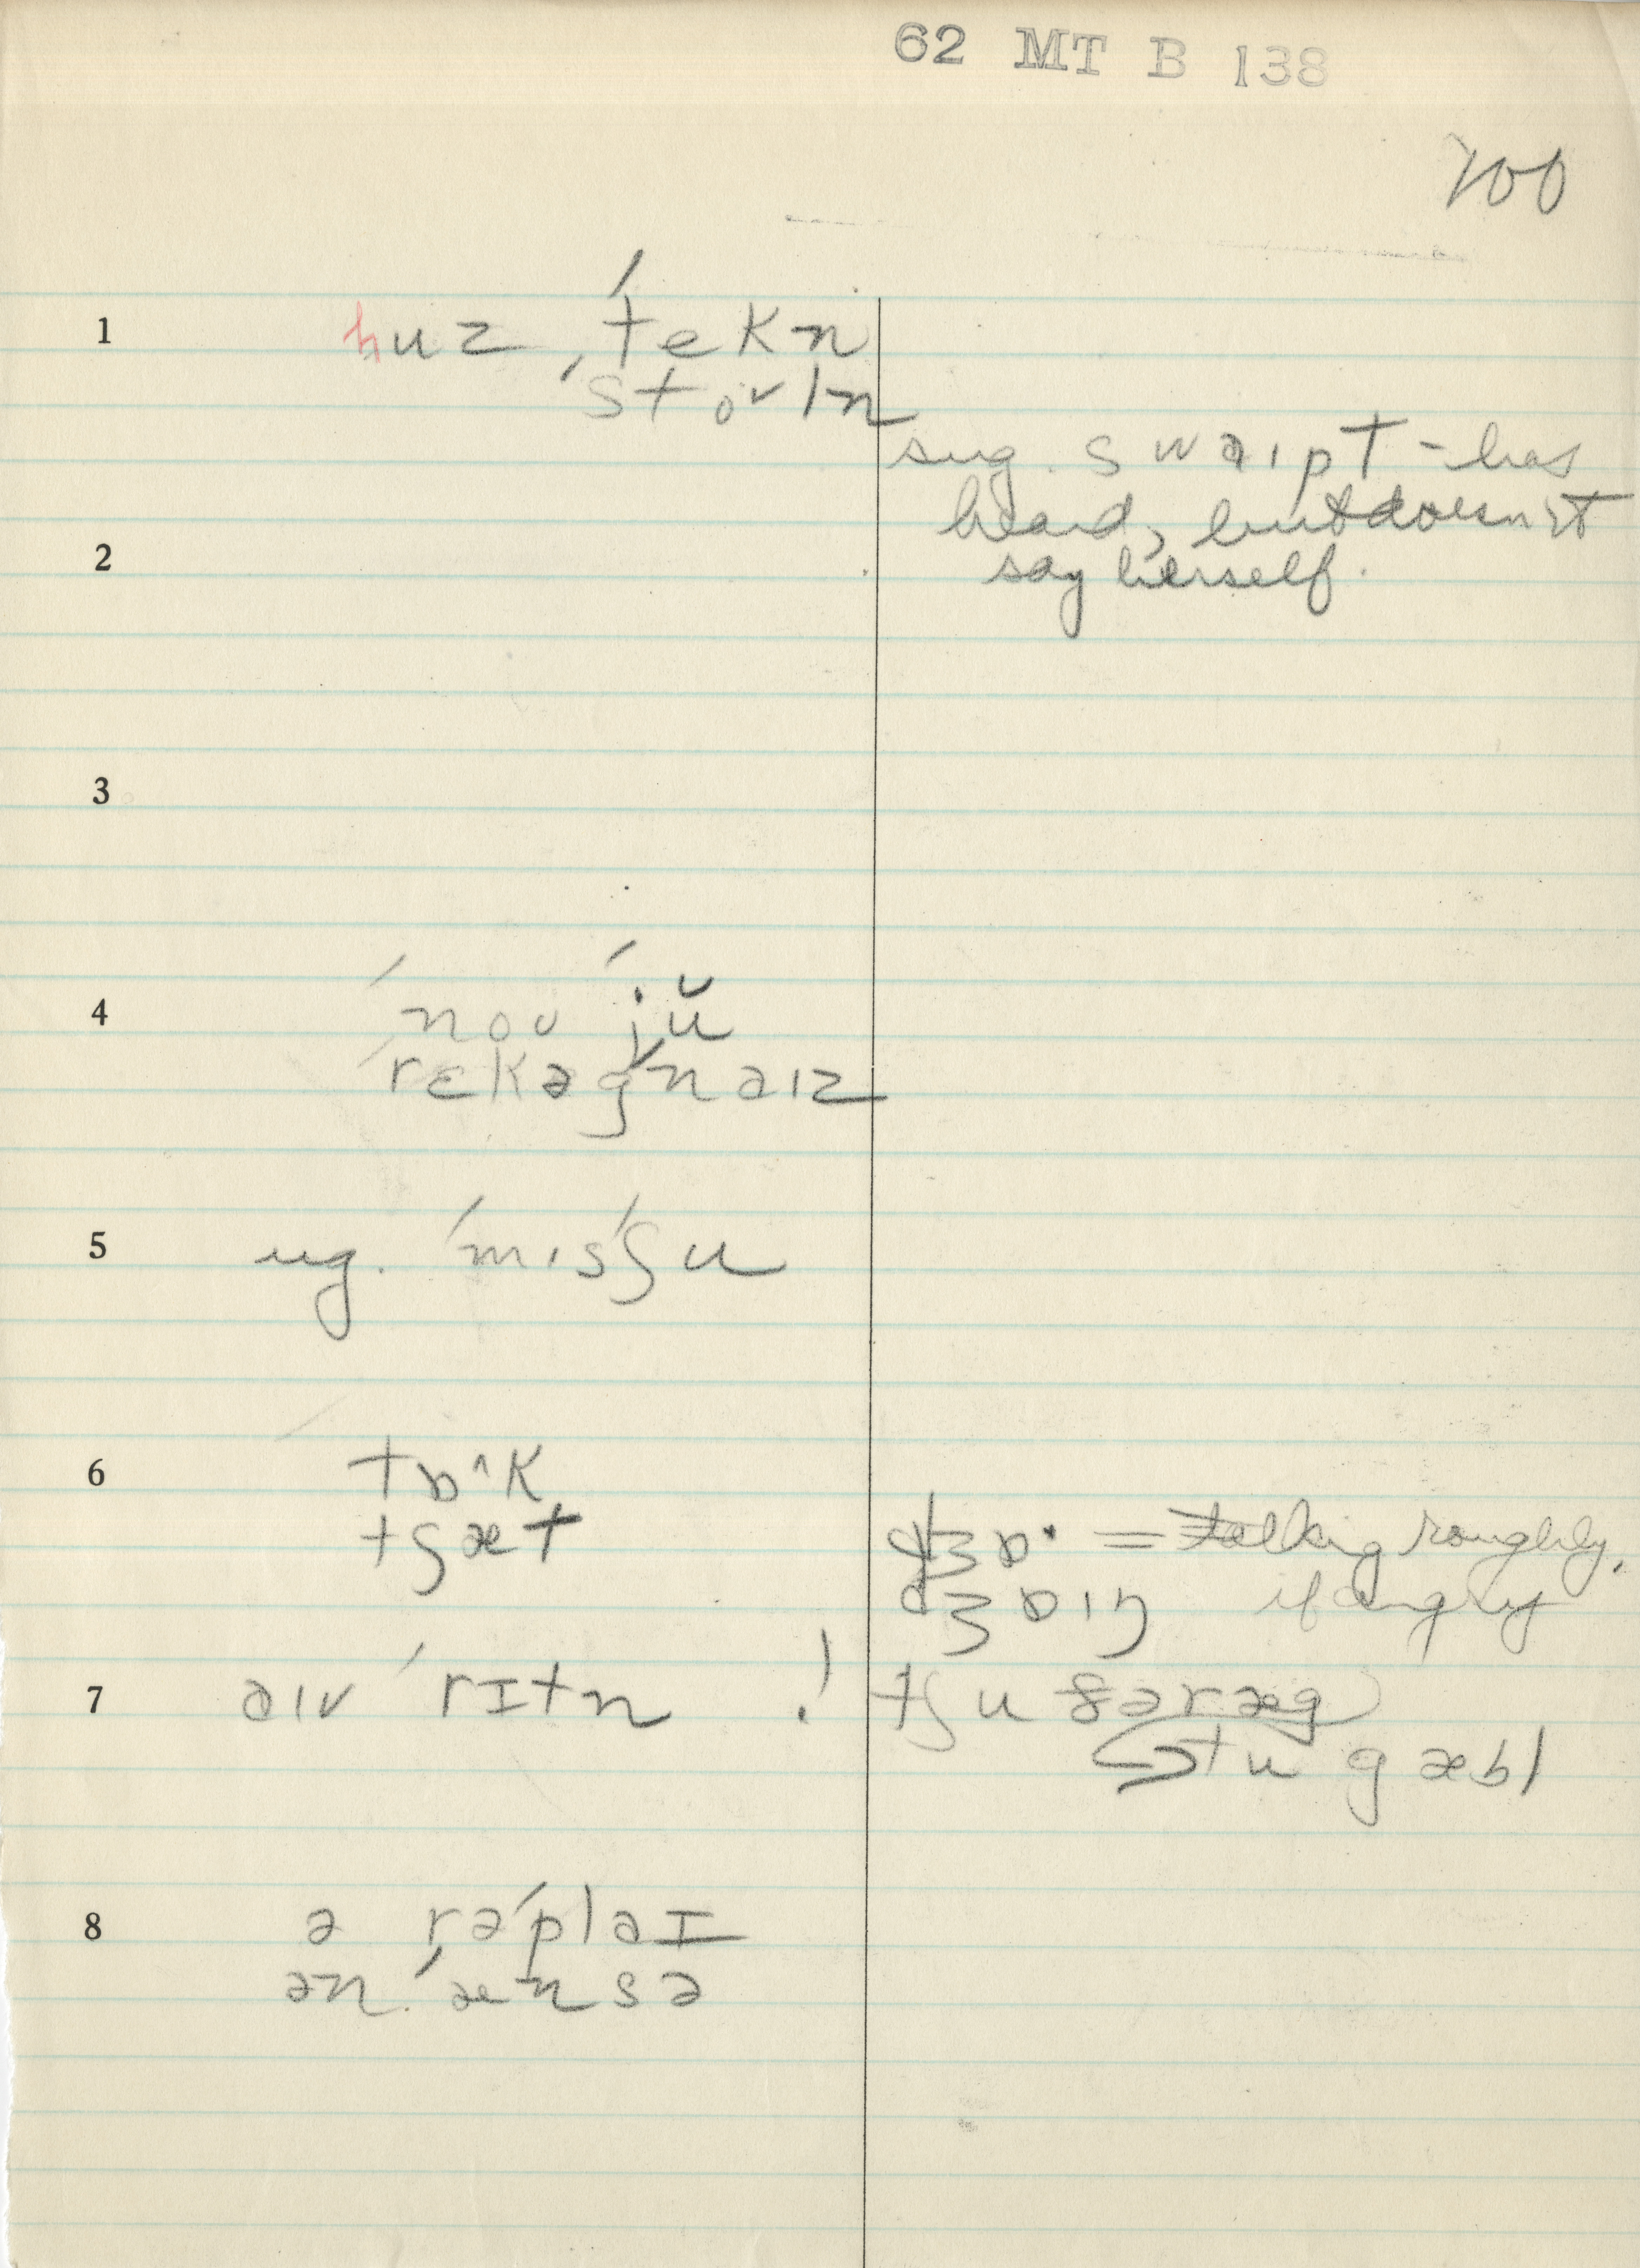 62 MT B 138
100
1
huz ˈtekn
ˈstoʊln
sug. swaɪpt - has
heard, but doesn't
2
say herself.
3
4
ˈnoʊ ˈjŭ
ˈrɛkəgnaɪz
5
ug. ˈmɪsˈʃu
6
tɒˑk
tʃæt
dʒɒ· = talking roughly,
dʒɒɪŋ if angry
7
aɪv ˈrɪtn
! tʃu
tu gæbl
8
ə rəˈplaɪ
ən ˈænsə